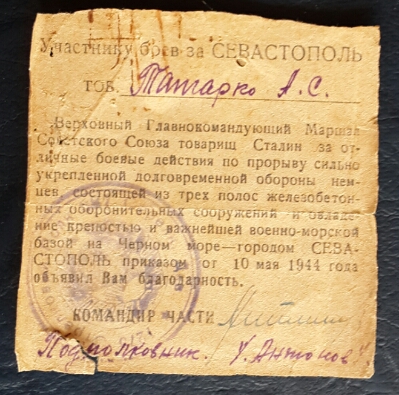 Участнику боев за СЕВАСТОПОЛЬ
ТОВ. Татарко А.С.
Верховный Главнокомандующий Маршал
Советского Союза товарищ Сталин за от-
личные боевые действия по прорыву сильно
укрепленной долговременной обороны нем-
цев, состоящей из трех полос железобетон-
ных оборонительных сооружений и овладе-
ние крепостью и важнейшей военно-морской
базой на Черном море—городом СЕВА-
СТОПОЛЬ приказом от 10 мая 1944 года
объявил Вам благодарность.
КОМАНДИР ЧАСТИ
Подполковник. Антонов